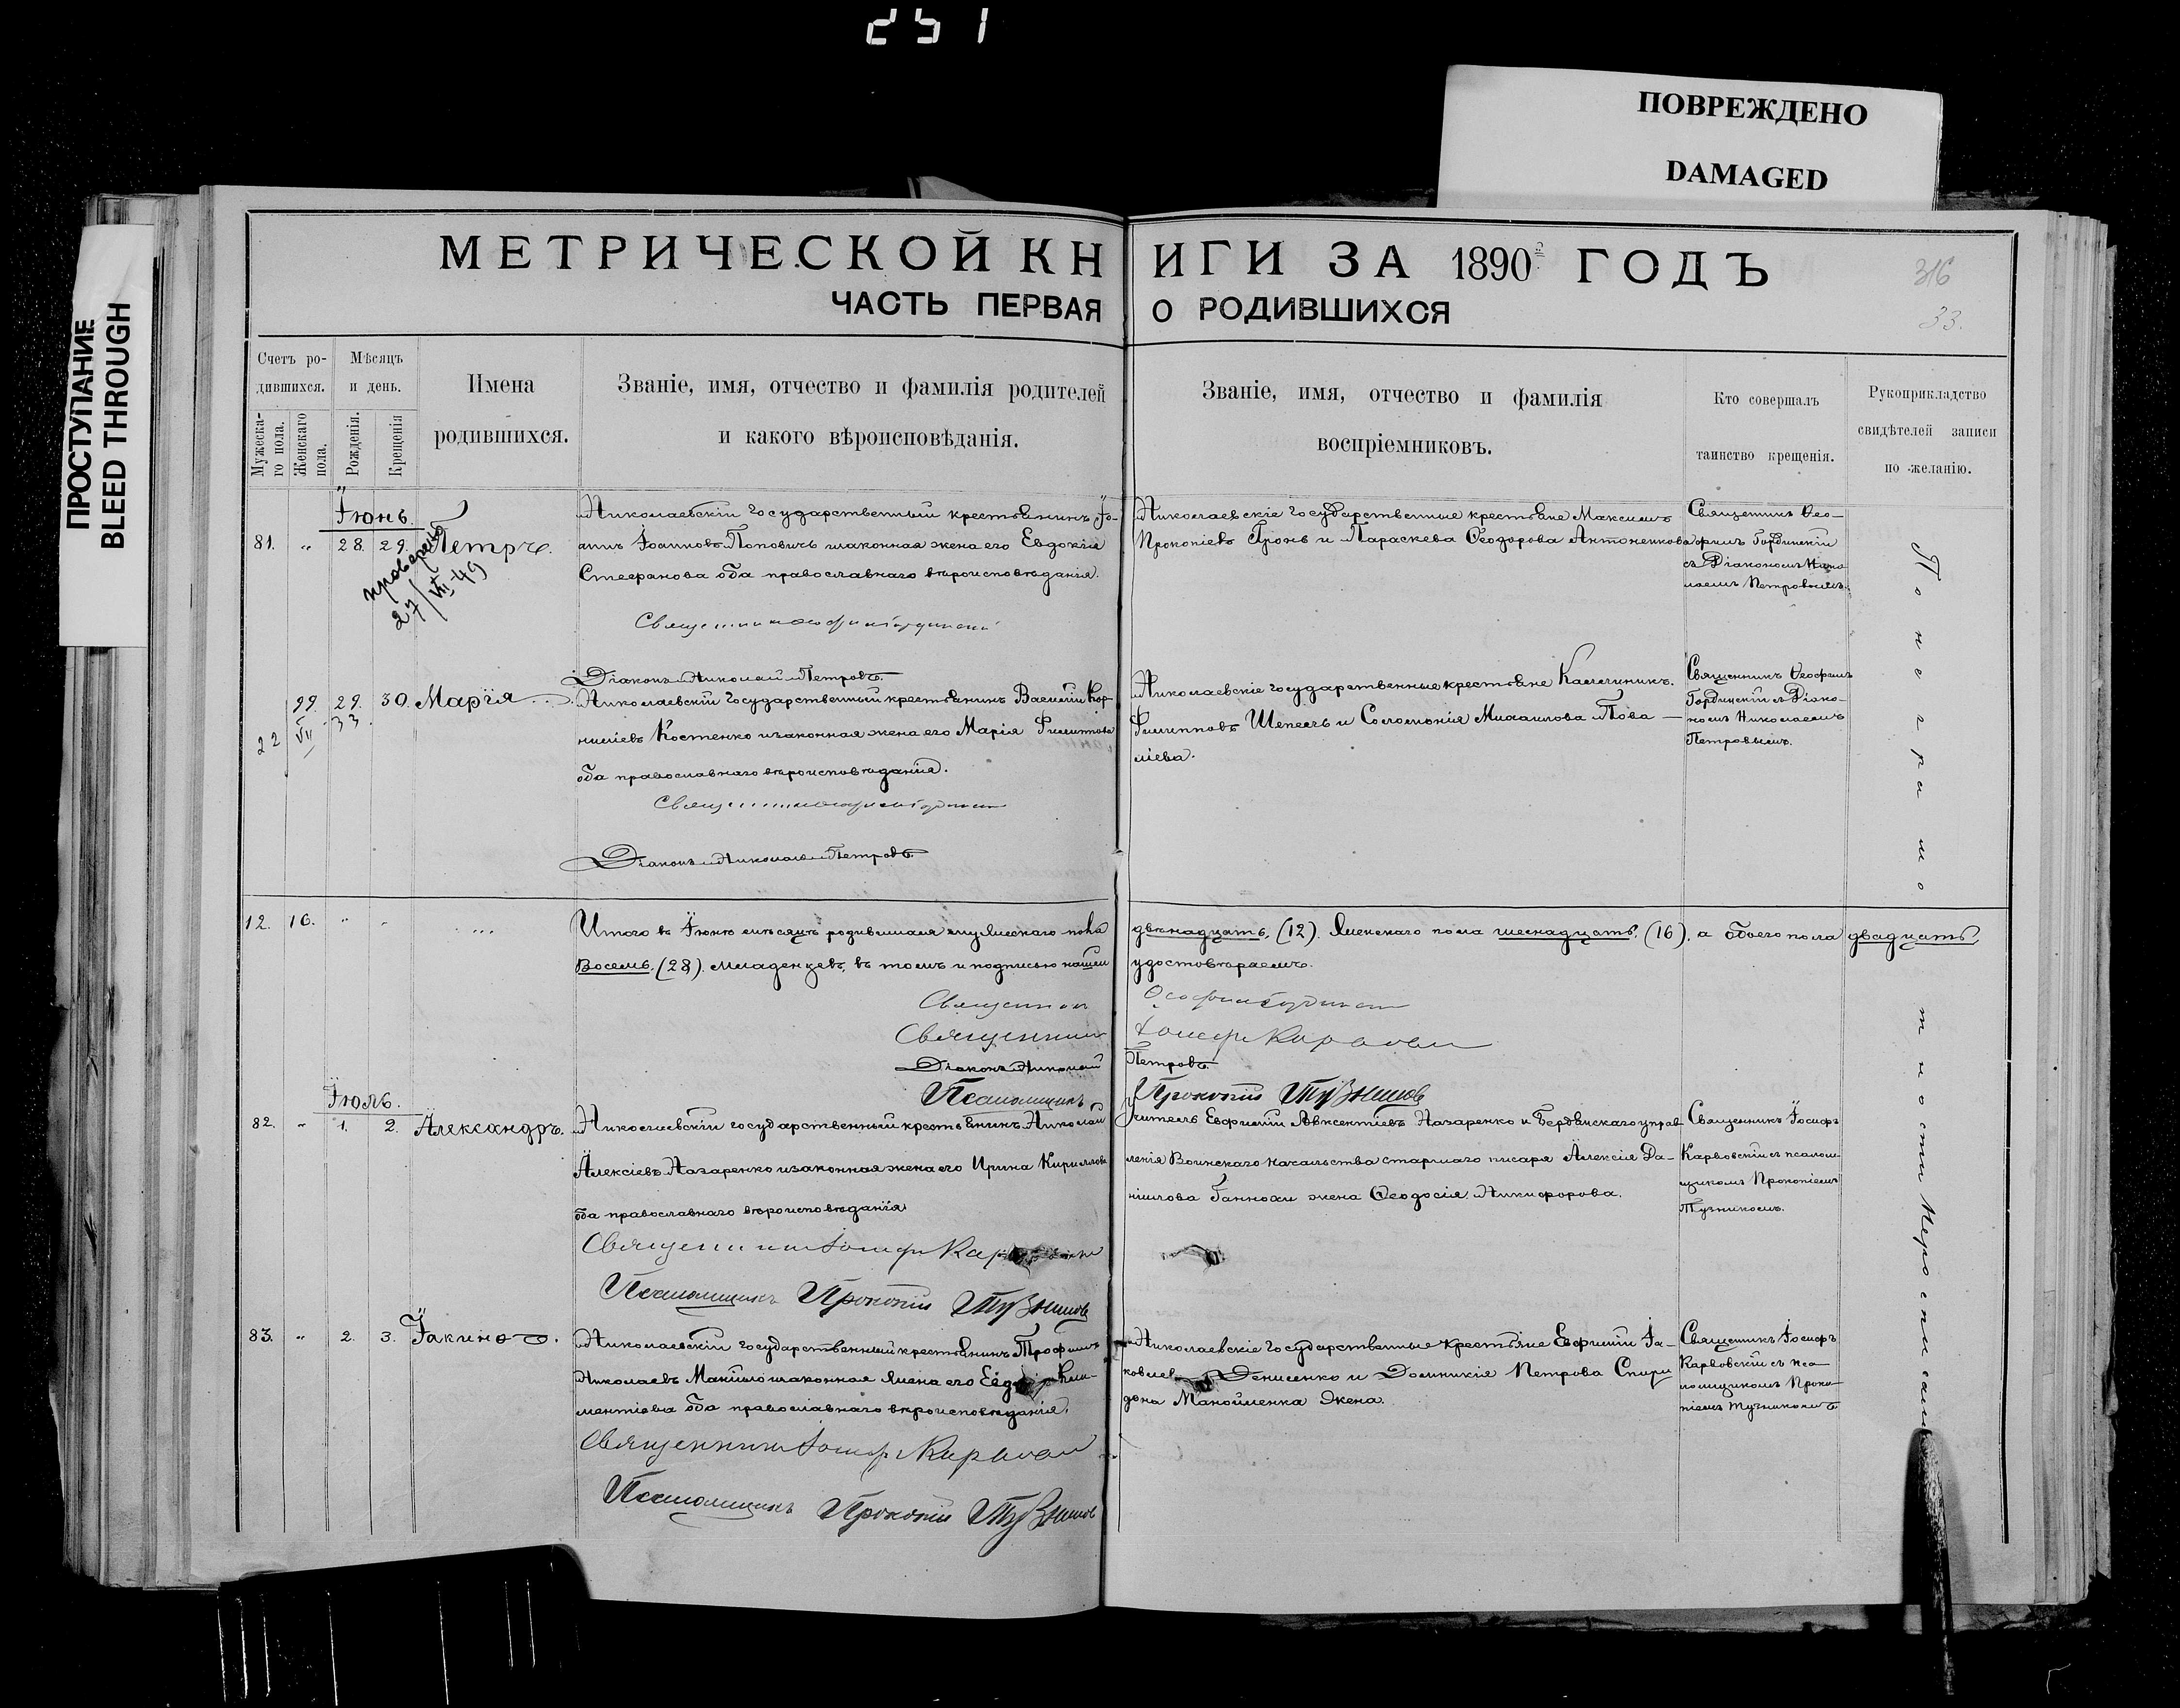 251
ПОВРЕЖДЕНО
DAMAGED
ПРОСТУПАНИЕ
BLEED THROUGH
МЕТРИЧЕСКОЙ КНИГИ ЗА 1890 ГОДЪ
ЧАСТЬ ПЕРВАЯ О РОДИВШИХСЯ
316
33.
Счетъ ро-
дившихся.
Мужеска-
го пола.
Женскаго
пола.
Мѣсяцъ
и день.
Рожденія.
Крещенія
Имена
родившихся.
Званіе, имя, отчество и фамилія родителей
и какого вѣроисповѣданія.
Званіе, имя, отчество и фамилія
воспріемниковъ.
Кто совершалъ
таинство крещенія.
Рукоприкладство
свидѣтелей записи
по желанію.
Іюнь.
81. " 28. 29. Петръ.
проверено
27/VII-49
Николаевскій государственный крестьянинъ Іо-
аннъ Іоанновъ Поповичъ и законная жена его Евдокія
Стефанова оба православнаго вѣроисповѣданія.
Николаевскіе государственные крестьяне Максимъ
Прокопіевъ Гронь и Параскева Ѳеодорова Антоненкова
Священникъ Ѳео-
филъ Гординскій
съ Діакономъ Нико-
лаемъ Петровымъ.
Діаконъ Николай Петровъ
99. 29. 30. Марія
22 VII 33
Николаевскій государственный крестьянинъ Василій Кор-
ниліевъ Костенко и законная жена его Марія Филиппова
оба православнаго вѣроисповѣданія.
Николаевскіе государственные крестьяне Каллиникъ
Филипповъ Шепель и Соломонія Михаилова Пова-
ліева.
Священникъ Ѳеофилъ
Гординскій съ Діако-
номъ Николаемъ
Петровымъ.
Діаконъ Николай Петровъ
12. 16. " " "
Итого въ Іюнѣ мѣсяцѣ родившихся мужескаго пола двѣнадцать, (12). Женскаго пола шеснадцать, (16), а обоего пола двадцать
Восемь. (28). Младенцевъ, въ томъ и подписью нашею удостовѣряемъ.
Священникъ
Священникъ Іосифъ
Діаконъ Николай Петровъ
Псаломщикъ Прокопій
Іюль.
82. " 1. 2. Александръ.
Николаевскій государственный крестьянинъ Николай
Алексіевъ Назаренко и законная жена его Ирина Кириллова
оба православнаго вѣроисповѣданія
Учитель Евфимій Авксентіевъ Назаренко и Бердянскаго управ-
ленія Воинскаго начальства старшаго писаря Алексія Да-
ніилова жена Ѳеодосія Никифорова.
Священникъ Іосифъ
Карвовскій съ псалом-
щикомъ Прокопіемъ
Тузниковъ.
Священникъ Іосифъ
Псаломщикъ Прокопій
83. " 2. 3. Іакинѳъ.
Николаевскій государственный крестьянинъ Трофимъ
Николаевъ и законная жена его Кли-
ментіева оба православнаго вѣроисповѣданія.
Николаевскіе государственные крестьяне Евфимій Іа-
ковлев Денисенко и Домникія Петрова Спири-
дона Манойленка жена.
Священникъ Іосифъ
Карвовскій съ пса-
ломщикомъ Проко-
піемъ
Священникъ Іосифъ
Псаломщикъ Прокопій
По неграмотности не росписались